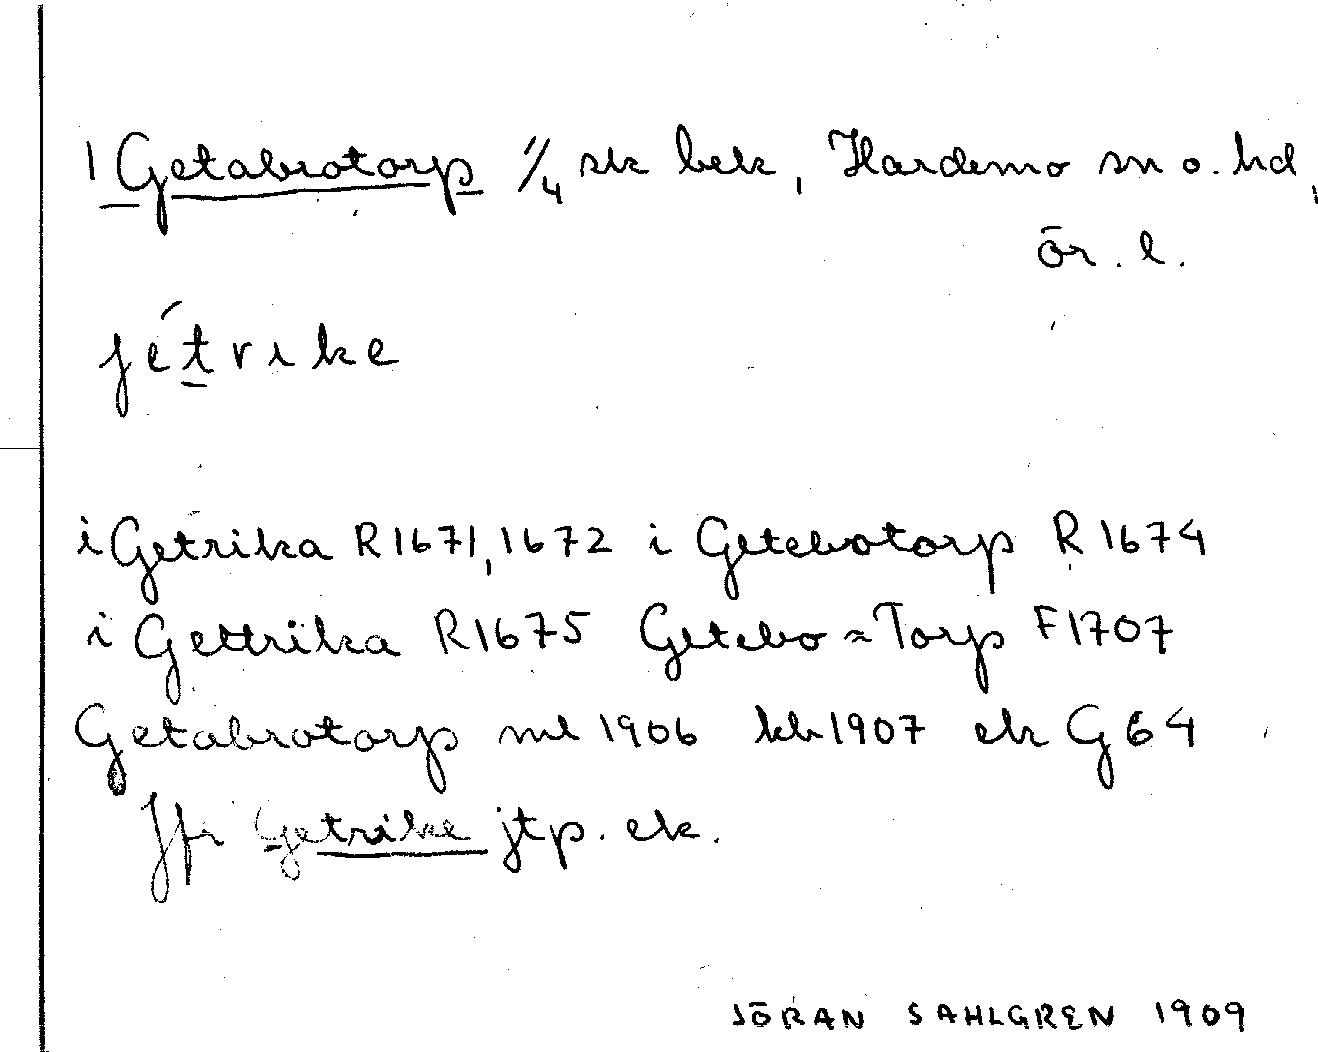 1 Getabrotorp 1/4 sk bek, Hardemo sn o. hd,
ör. l.
jétrike
i Getrika R 1671, 1672 i Getebotorp R 1674
i Gettrika R 1675 Getebo=Torp F 1707
Getabrotorp ml 1906 kb 1907 ek G 64
Jfr Getrike jtp. ek.
JÖRAN SAHLGREN 1909